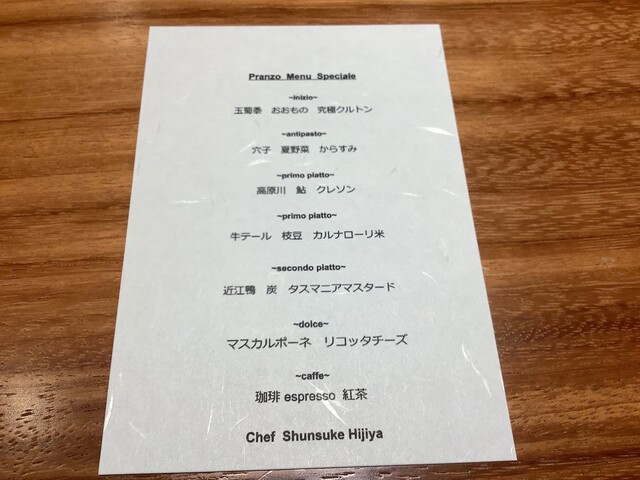 Pranzo Menu Speciale
~inizio~
玉蜀黍 おおもの 究極クルトン
~antipasto~
穴子 夏野菜 からすみ
~primo piatto~
高原川 鮎 クレソン
~primo piatto~
牛テール 枝豆 カルナローリ米
~secondo piatto~
近江鴨 炭 タスマニアマスタード
~dolce~
マスカルポーネ リコッタチーズ
~caffe~
珈琲 espresso 紅茶
Chef Shunsuke Hijiya